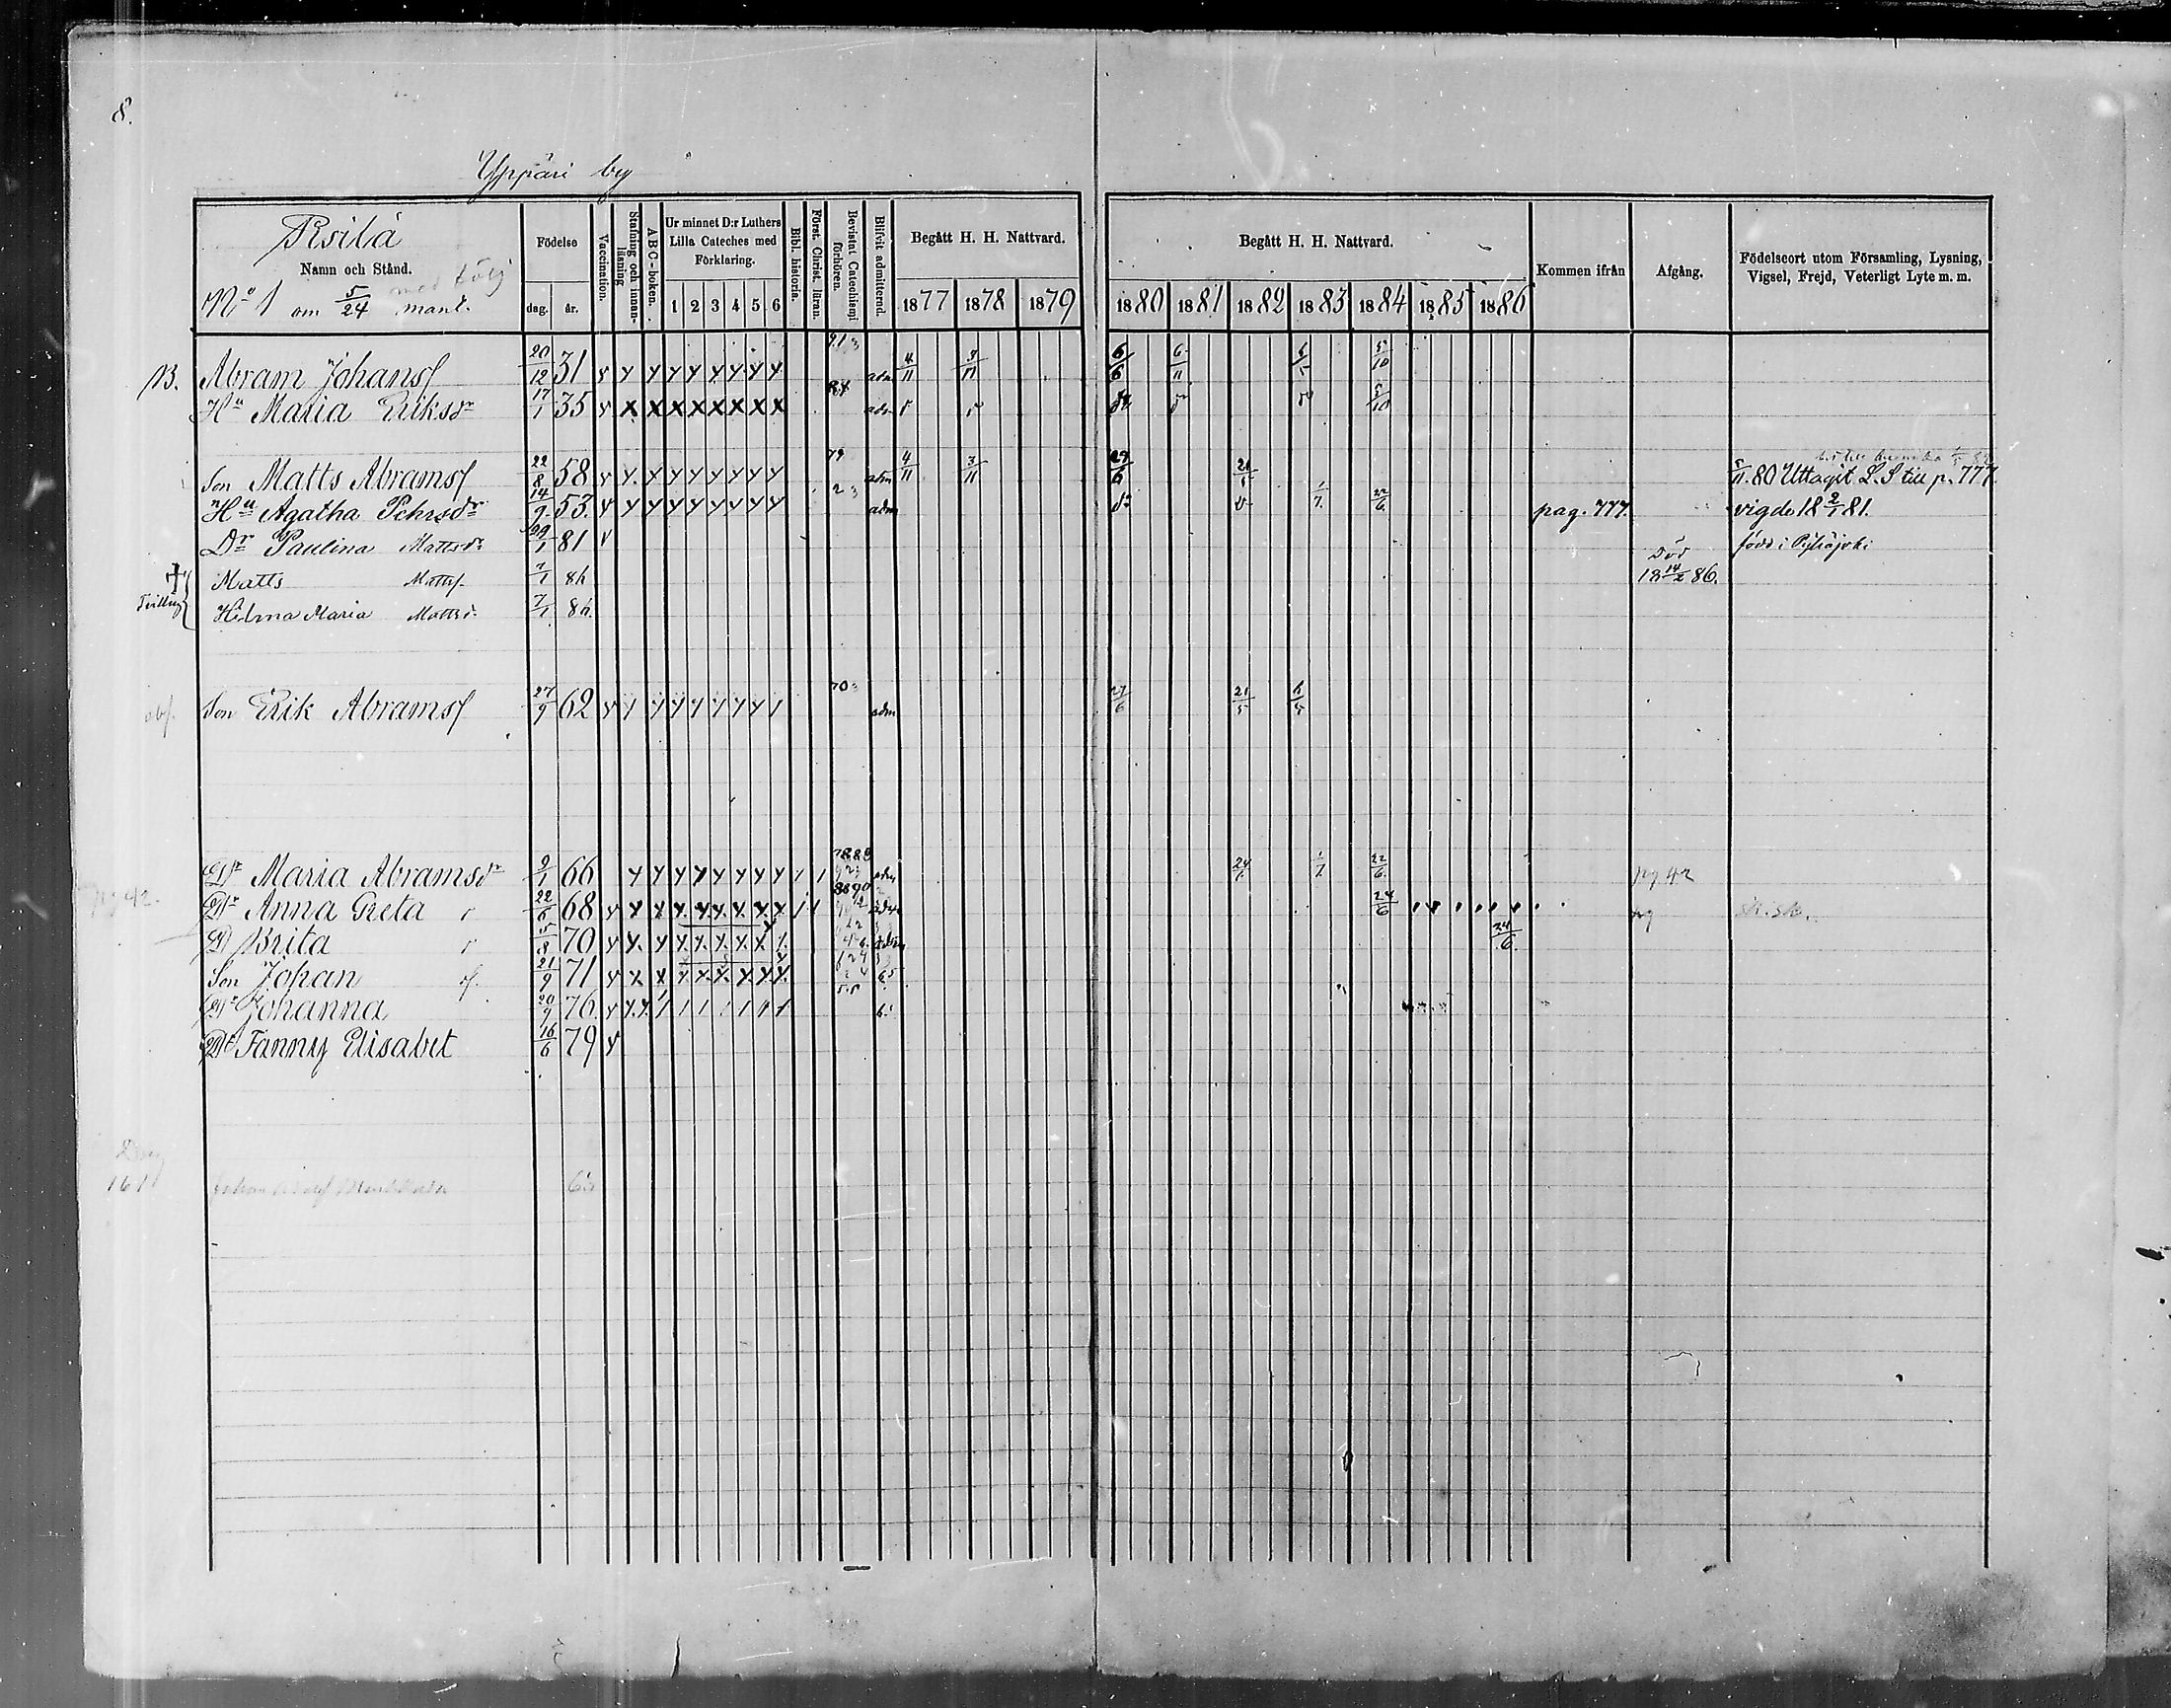 8.
Yppäri by
Rsilä
Namn och Stånd.
med följ
No 1 om 5/24 mant.
Födelse
dag. år.
Vaccination.
Stafning och innanläsning
A B C-boken.
Ur minnet D:r Luthers Lilla Cateches med Förklaring.
1 2 3 4 5 6
Bibl. historia.
Först. Christ. läran.
Bevistat Catechismi förhören.
Blifvit admitterad.
Begått H. H. Nattvard.
1877 1878 1879
Begått H. H. Nattvard.
1880 1881 1882 1883 1884 1885 1886
Kommen ifrån
Afgång.
Födelseort utom Församling, Lysning, Vigsel, Frejd, Veterligt Lyte m. m.
B. Abram Johansf 20/12 31 adm 4/11 3/11 6/6 6/11 6/5 5/10
Hu Maria Eriksdr 17/1 35 adm 5/10
Son Matts Abramsf 22/8 58 adm 4/11 3/11 27/6 21/5 5/11 80 Uttagit L.S till p. 777.
Hu Agatha Pehrsdr 14/9 53. adm do 1/7 22/6 pag. 777. vigde 18 2/1 81.
Dr Paulina Mattsdr 29/1 81 född i Pyhäjoki
Tvilling
† Matts Mattsf. 7/1 86 Död 18 14/2 86.
Hilma Maria Mattsdr 7/1 86.
obf. Son Erik Abramsf 27/9 62 70 adm 27/6 21/5 6/5
Dr Maria Abramsdr 9/1 66 adm 24/6 1/7 22/6 pg 42
pg 42. Dr Anna Greta 22/6 68 24/6 sk. sk.
D Brita 5/8 70 24/6
Son Johan 21/9 71
Dr Johanna 20/9 76
Dr Fanny Elisabet 16/6 79